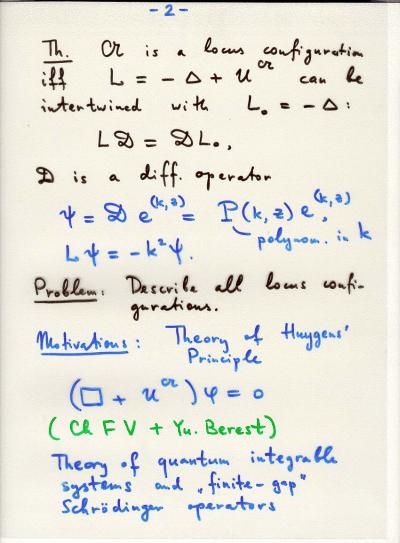 - 2 -
Th. Ol is a locus configuration
iff L = - Δ + u^Ol can be
intertwined with L₀ = - Δ :
L D = D L₀,
D is a diff. operator
ψ = D e^(k,z) = P(k,z) e^(k,z),
polynom. in k
L ψ = - k² ψ.
Problem: Describe all locus confi-
gurations.
Motivations: Theory of Huygens'
Principle
(□ + u^Ol) φ = 0
(Ch F V + Yu. Berest)
Theory of quantum integrable
systems and „finite-gap"
Schrödinger operators